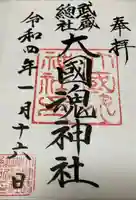 奉拝
武蔵
總社
大國魂神社
令和四年一月十六日